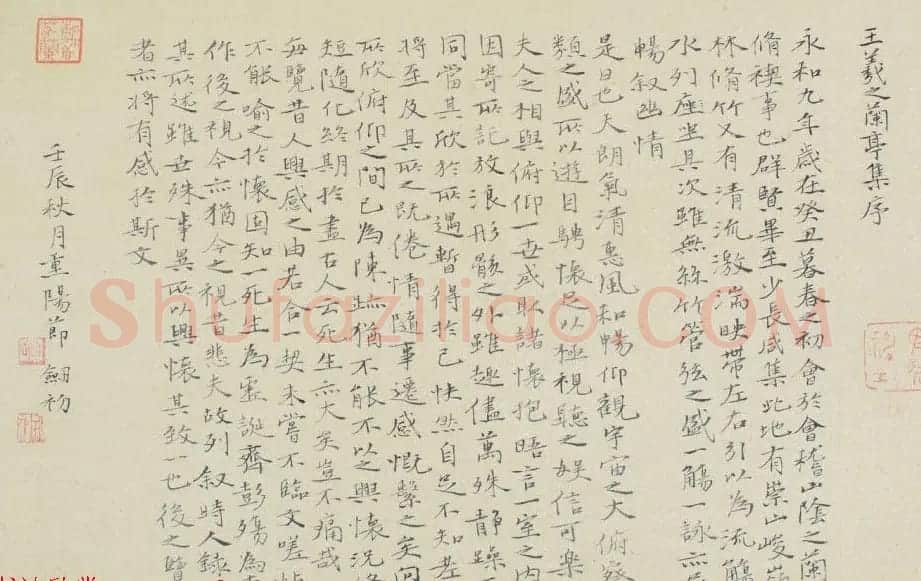 王羲之蘭亭集序
永和九年歲在癸丑暮春之初會於會稽山陰之蘭
脩禊事也群賢畢至少長咸集此地有崇山峻
林脩竹又有清流激湍映帶左右引以為流觴
水列座坐其次雖無絲竹管弦之盛一觴一詠亦
暢叙幽情
是日也天朗氣清惠風和暢仰觀宇宙之大俯察
類之盛所以遊目騁懷足以極視聽之娛信可樂
夫人之相與俯仰一世或取諸懷抱晤言一室之內
因寄所記放浪形骸之外雖趣儘萬殊靜躁
同當其欣於所遇暫得於己快然自足不知老
將至及其所之既倦情隨事遷感慨繫之矣向
所欣俯仰之間已為陳跡猶不能不以之興懷況
短隨化終期於盡古人云死生亦大矣豈不痛哉
每覽昔人興感之由若合一契未嘗不臨文嗟悼
不能喻之於懷固知一死生為虛誕齊彭殤為
作後之視今亦猶今之視昔悲夫故列叙時人錄
其所述雖世殊事異所以興懷其致一也後之覽
者亦將有感於斯文
壬辰秋月重陽節 劍初
Shufazilico.COM